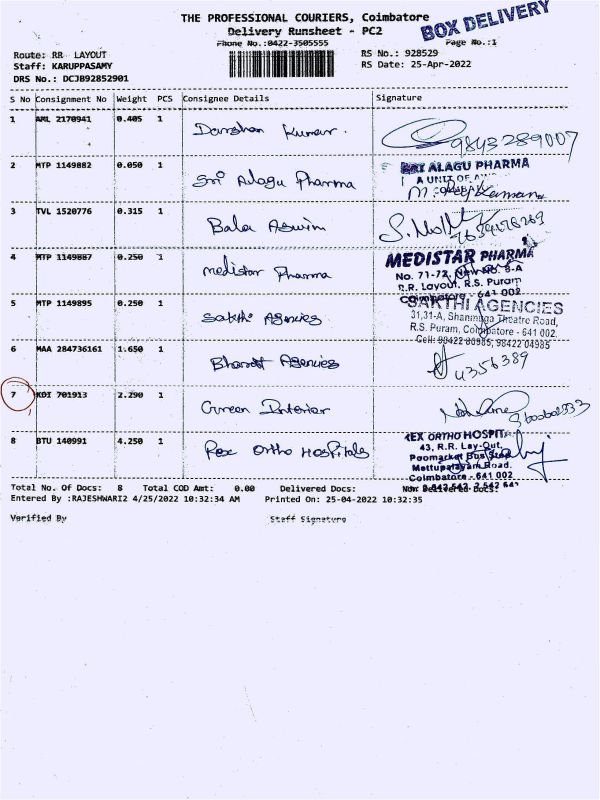 THE PROFESSIONAL COURIERS, Coimbatore
BOX DELIVERY
Delivery Runsheet - PC2
Phone No.:0422-3505555
Page No.:1
Route: RR LAYOUT
RS No.: 928529
Staff: KARUPPASAMY
RS Date: 25-Apr-2022
DRS No.: DCJB92852901
S No Consignment No Weight PCS Consignee Details Signature
1 AML 2170941 0.405 1 Darshan Kumar. 9843289007
2 MTP 1149882 0.050 1 Sri Alagu Pharma
SRI ALAGU PHARMA
A UNIT OF
3 TVL 1520776 0.315 1 Bala Aswin
4 MTP 1149887 0.250 1 Medistar Pharma
MEDISTAR PHARMA
No. 71-72, New No. 8-A
R.R. Layout, R.S. Puram
Coimbatore - 641 002
5 MTP 1149895 0.250 1 Sakthi Agencies
SAKTHI AGENCIES
31,31-A, Shanmuga Theatre Road,
R.S. Puram, Coimbatore - 641 002.
Cell: 98422 80985, 98422 04985
6 MAA 284736161 1.650 1 Bharat Agencies
4356389
7 KDI 701913 2.290 1 Green Interior
8 BTU 140991 4.250 1 Rex Ortho Hospitals
REX ORTHO HOSPITAL
43, R.R. Lay-Out,
Poomarket Bus Stop
Mettupalayam Road.
Coimbatore - 641 002
Total No. Of Docs: 8 Total COD Amt: 0.00 Delivered Docs: Non Delivered Docs:
Entered By :RAJESHWARI2 4/25/2022 10:32:34 AM Printed On: 25-04-2022 10:32:35
Verified By Staff Signature